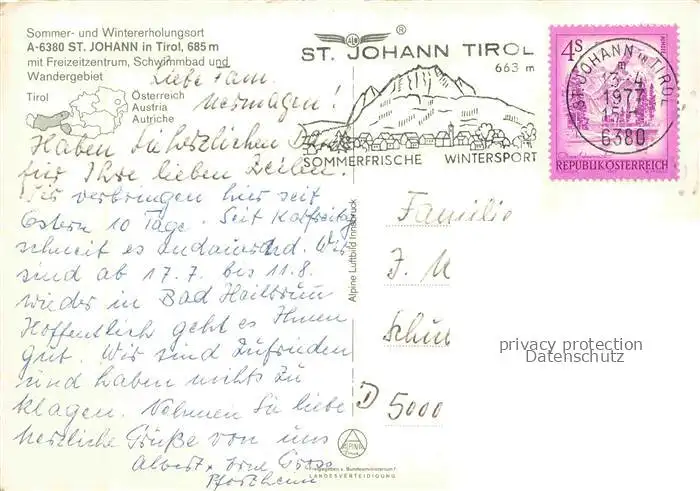 Sommer- und Wintererholungsort
A-6380 ST. JOHANN in Tirol, 685 m
mit Freizeitzentrum, Schwimmbad und
Wandergebiet
Tirol
Österreich
Austria
Autriche
Liebe Fam.
Nermagen!
Haben Sie herzlichen Dank
für Ihre lieben Zeilen!
Wir verbringen hier seit
Ostern 10 Tage. Seit Karfreitag
schneit es andauernd. Wir
sind ab 17.7. bis 11.8.
wieder in Bad Heilbrunn
Hoffentlich geht es Ihnen
gut. Wir sind zufrieden
und haben nichts zu
klagen. Nehmen Sie liebe
herzliche Grüße von uns
Albert
Pforzheim
Alpine Luftbild Innsbruck
ALPINE
LANDESVERTEIDIGUNG
ST. JOHANN TIROL
663 m
SOMMERFRISCHE WINTERSPORT
4S
REPUBLIK ÖSTERREICH
ST. JOHANN IN TIROL
1977
6380
Familie
J. M
Schu
D 5000
privacy protection
Datenschutz